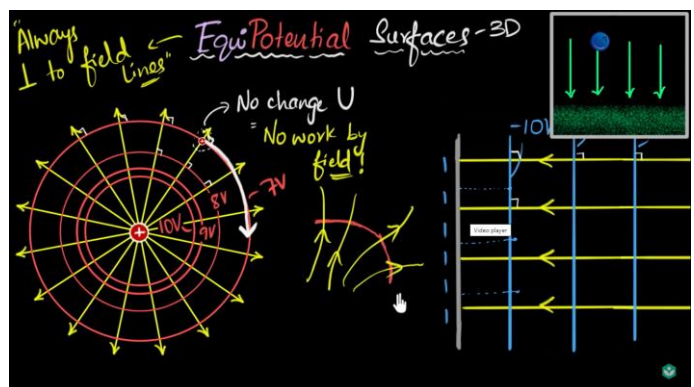 "Always
⊥ to field
lines"
EquiPotential Surfaces - 3D
No change U
= No work by
field!
10V
9V
8V
7V
-10V
Video player